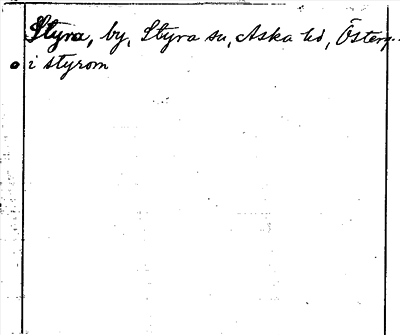 Styra, by, Styra sn, Aska hd, Österg.
i styrom